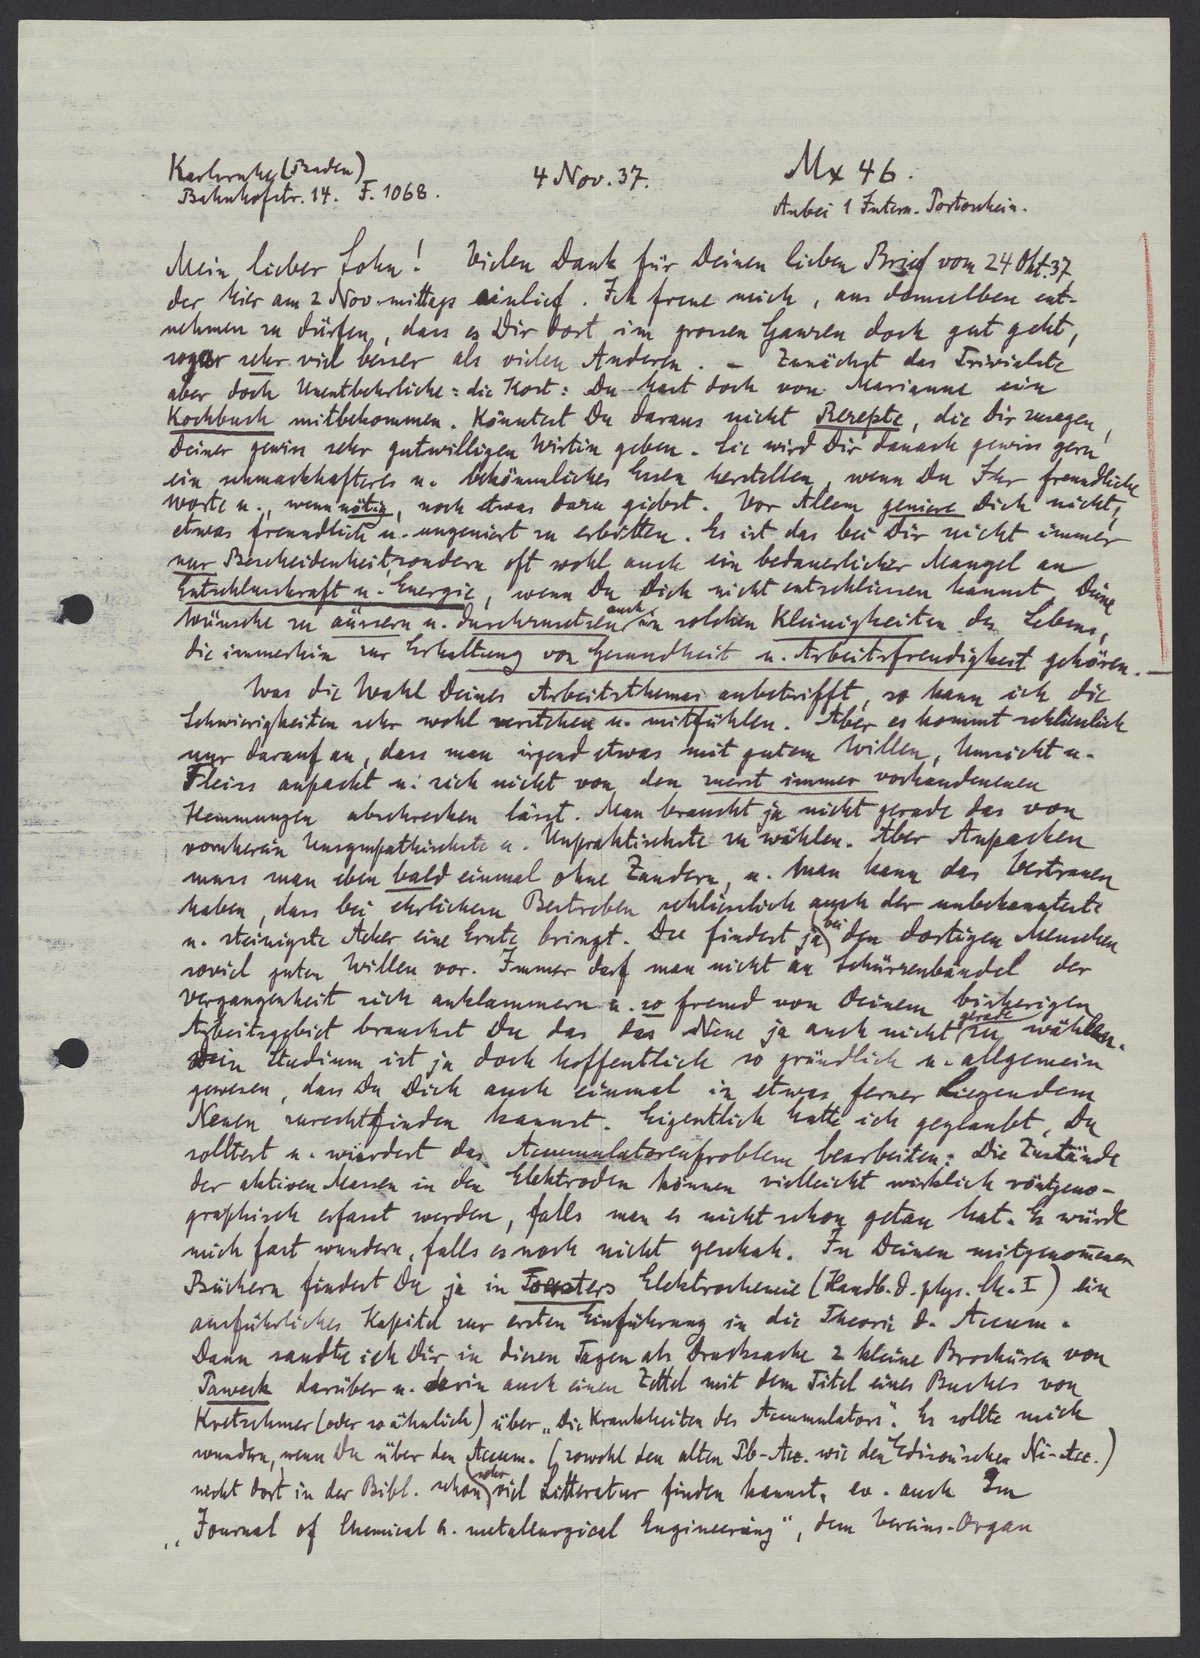 Karlsruhe (Baden)
Bahnhofstr. 14. F. 1068.
4 Nov. 37.
Mx 46.
Anbei 1 Intern. Portoschein.
Mein lieber Sohn! Vielen Dank für Deinen lieben Brief vom 24 Okt. 37
der hier am 2 Nov. mittags einlief. Ich freue mich, aus demselben ent-
nehmen zu dürfen, dass es Dir dort im grossen Ganzen doch gut geht,
sogar sehr viel besser als vielen Anderen. – Zunächst das Trivialste
aber doch Unentbehrliche: die Kost: Du hast doch von Marianne ein
Kochbuch mitbekommen. Könntest Du daraus nicht Rezepte, die Dir zusagen,
Deiner gewiss sehr gutwilligen Wirtin geben. Sie wird Dir danach gewiss gern
ein schmackhafteres u. bekömmliches Essen herstellen, wenn Du Ihr freundliche
Worte u., wenn nötig, noch etwas dazu giebst. Vor Allem geniere Dich nicht,
etwas freundlich u. ungeniert zu erbitten. Es ist das bei Dir nicht immer
nur Bescheidenheit, sondern oft wohl auch ein bedauerlicher Mangel an
Entschlusskraft u. Energie, wenn Du Dich nicht entschliessen kannst, Deine
Wünsche zu äussern u. durchzusetzen auch in solchen Kleinigkeiten des Lebens,
die immerhin zur Erhaltung von Gesundheit u. Arbeitsfreudigkeit gehören. –
Was die Wahl Deines Arbeitsthemas anbetrifft, so kann ich die
Schwierigkeiten sehr wohl verstehen u. mitfühlen. Aber es kommt schliesslich
nur darauf an, dass man irgend etwas mit gutem Willen, Umsicht u.
Fleiss anpackt u. sich nicht von den zuerst immer vorhandenenen
Hemmungen abschrecken lässt. Man braucht ja nicht gerade das von
vornherein Unsympathischste u. Unpraktischste zu wählen. Aber Anpacken
muss man eben bald einmal ohne Zaudern, u. man kann das Vertrauen
haben, dass bei ehrlichem Bestreben schliesslich auch der unbekannteste
u. steinigste Acker eine Ernte bringt. Du findest ja bei den dortigen Menschen
soviel guten Willen vor. Immer darf man nicht an Schürzenbändel der
Vergangenheit sich anklammern u. so fremd von Deinem bisherigen
Arbeitsgebiet brauchst Du das das Neue ja auch nicht gerade zu wählen.
Dein Studium ist ja doch hoffentlich so gründlich u. allgemein
gewesen, dass Du Dich auch einmal in etwas ferner Liegendem
Neuen zurechtfinden kannst. Eigentlich hatte ich geglaubt, Du
solltest u. würdest das Accumulatorenproblem bearbeiten: Die Zustände
der aktiven Massen in den Elektroden können vielleicht wirklich röntgeno-
graphisch erfasst werden, falls man es nicht schon getan hat. Es würde
mich fast wundern, falls es noch nicht geschah. In Deinen mitgenommenen
Büchern findest Du ja in Foersters Elektrochemie (Handb. d. phys. Ch. I) ein
ausführliches Kapitel zur ersten Einführung in die Theorie d. Accum.
Dann sandte ich Dir in diesen Tagen als Drucksache 2 kleine Brochüren von
darüber u. darin auch einen Zettel mit dem Titel eines Buches von
Kretschmer (oder so ähnlich) über „Die Krankheiten des Accumulators". Es sollte mich
wundern, wenn Du über den Accum. (sowohl den alten Pb-Acc. wie den Edison'schen Ni-Acc.)
nicht dort in der Bibl. schon sehr viel Litteratur finden kannst, ev. auch Im
„Journal of Chemical u. metallurgical Engineering", dem Vereins-Organ